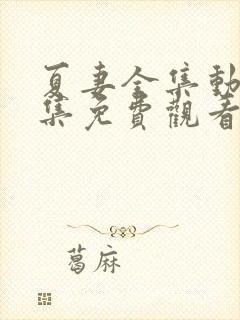 夏妻全集動
集免費觀看
葛麻